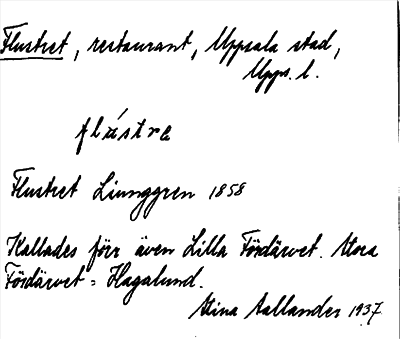 Flustret, restaurant, Uppsala stad,
Upps. l.
flústre
Flustret Ljunggren 1858
Kallades förr även Lilla Fördärvet. Stora
Fördärvet = Hagalund.
Stina Aallander 1937